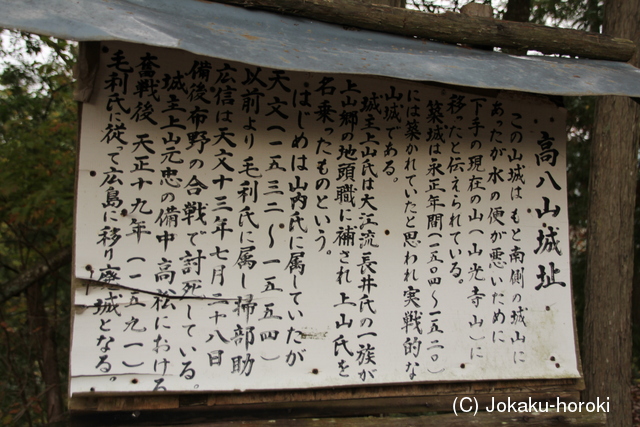 高八山城址
この山城はもと南側の城山に
あったが水の便が悪いために
下手の現在の山(山光寺山)に
移ったと伝えられている。
築城は永正年間(一五〇四～一五二〇)
には築かれていたと思われ実戦的な
山城である。
城主上山氏は大江流長井氏の一族が
上山郷の地頭職に補され上山氏を
名乗ったものという。
はじめは山内氏に属していたが
天文(一五三二～一五五四)
以前より毛利氏に属し掃部助
広信は天文十三年七月二十八日
備後布野の合戦で討死している。
城主上山元忠の備中高松における
奮戦後天正十九年(一五九一)
毛利氏に従って広島に移り廃城となる。
(C) Jokaku-horoki